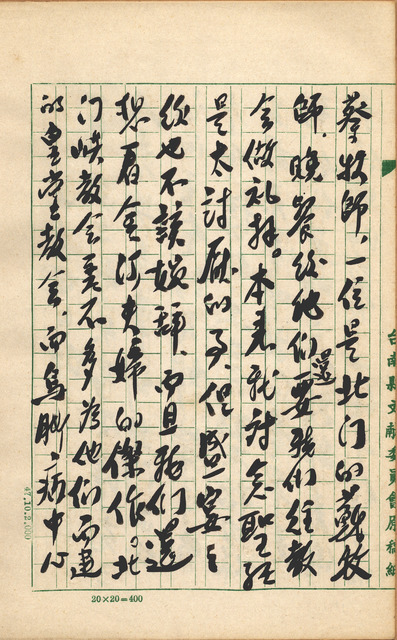 蔡牧師，一位是北门的蘇牧
師，晚餐後他们還要我们往教
会做礼拜。本来就討念聖经
是太討厭的事，但盛宴之
後也不該推辞，而且我们還
想看金河夫婦的傑作。北
门嶼教会差不多為他们而建
的皇堂教会，而烏脚病中心
台南縣文献委員會原稿紙
47.10.2.000
20×20=400